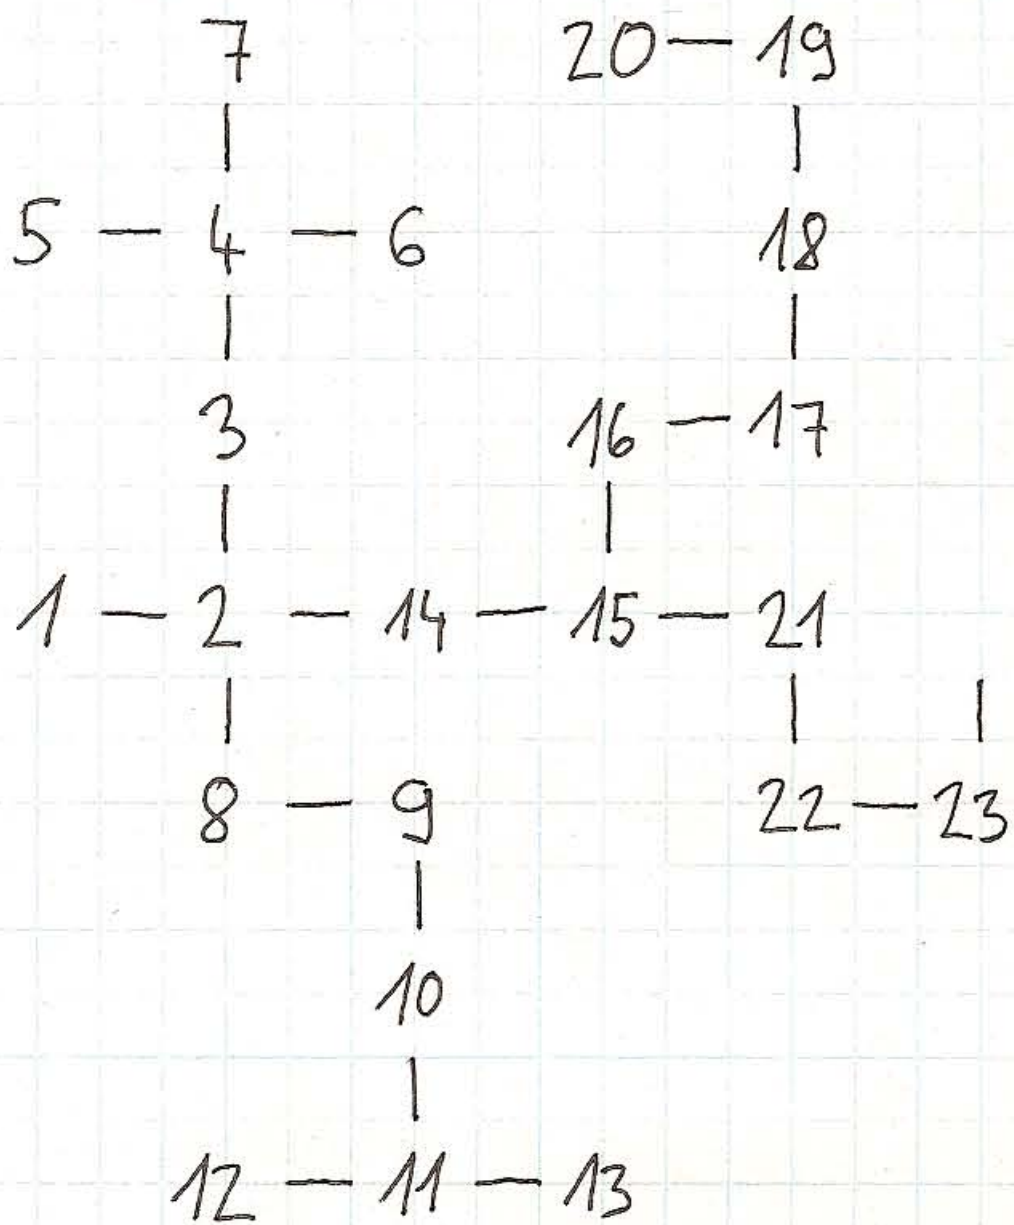 7 20 — 19
| |
5 — 4 — 6 18
| |
3 16 — 17
| |
1 — 2 — 14 — 15 — 21
| | |
8 — 9 22 — 23
|
10
|
12 — 11 — 13